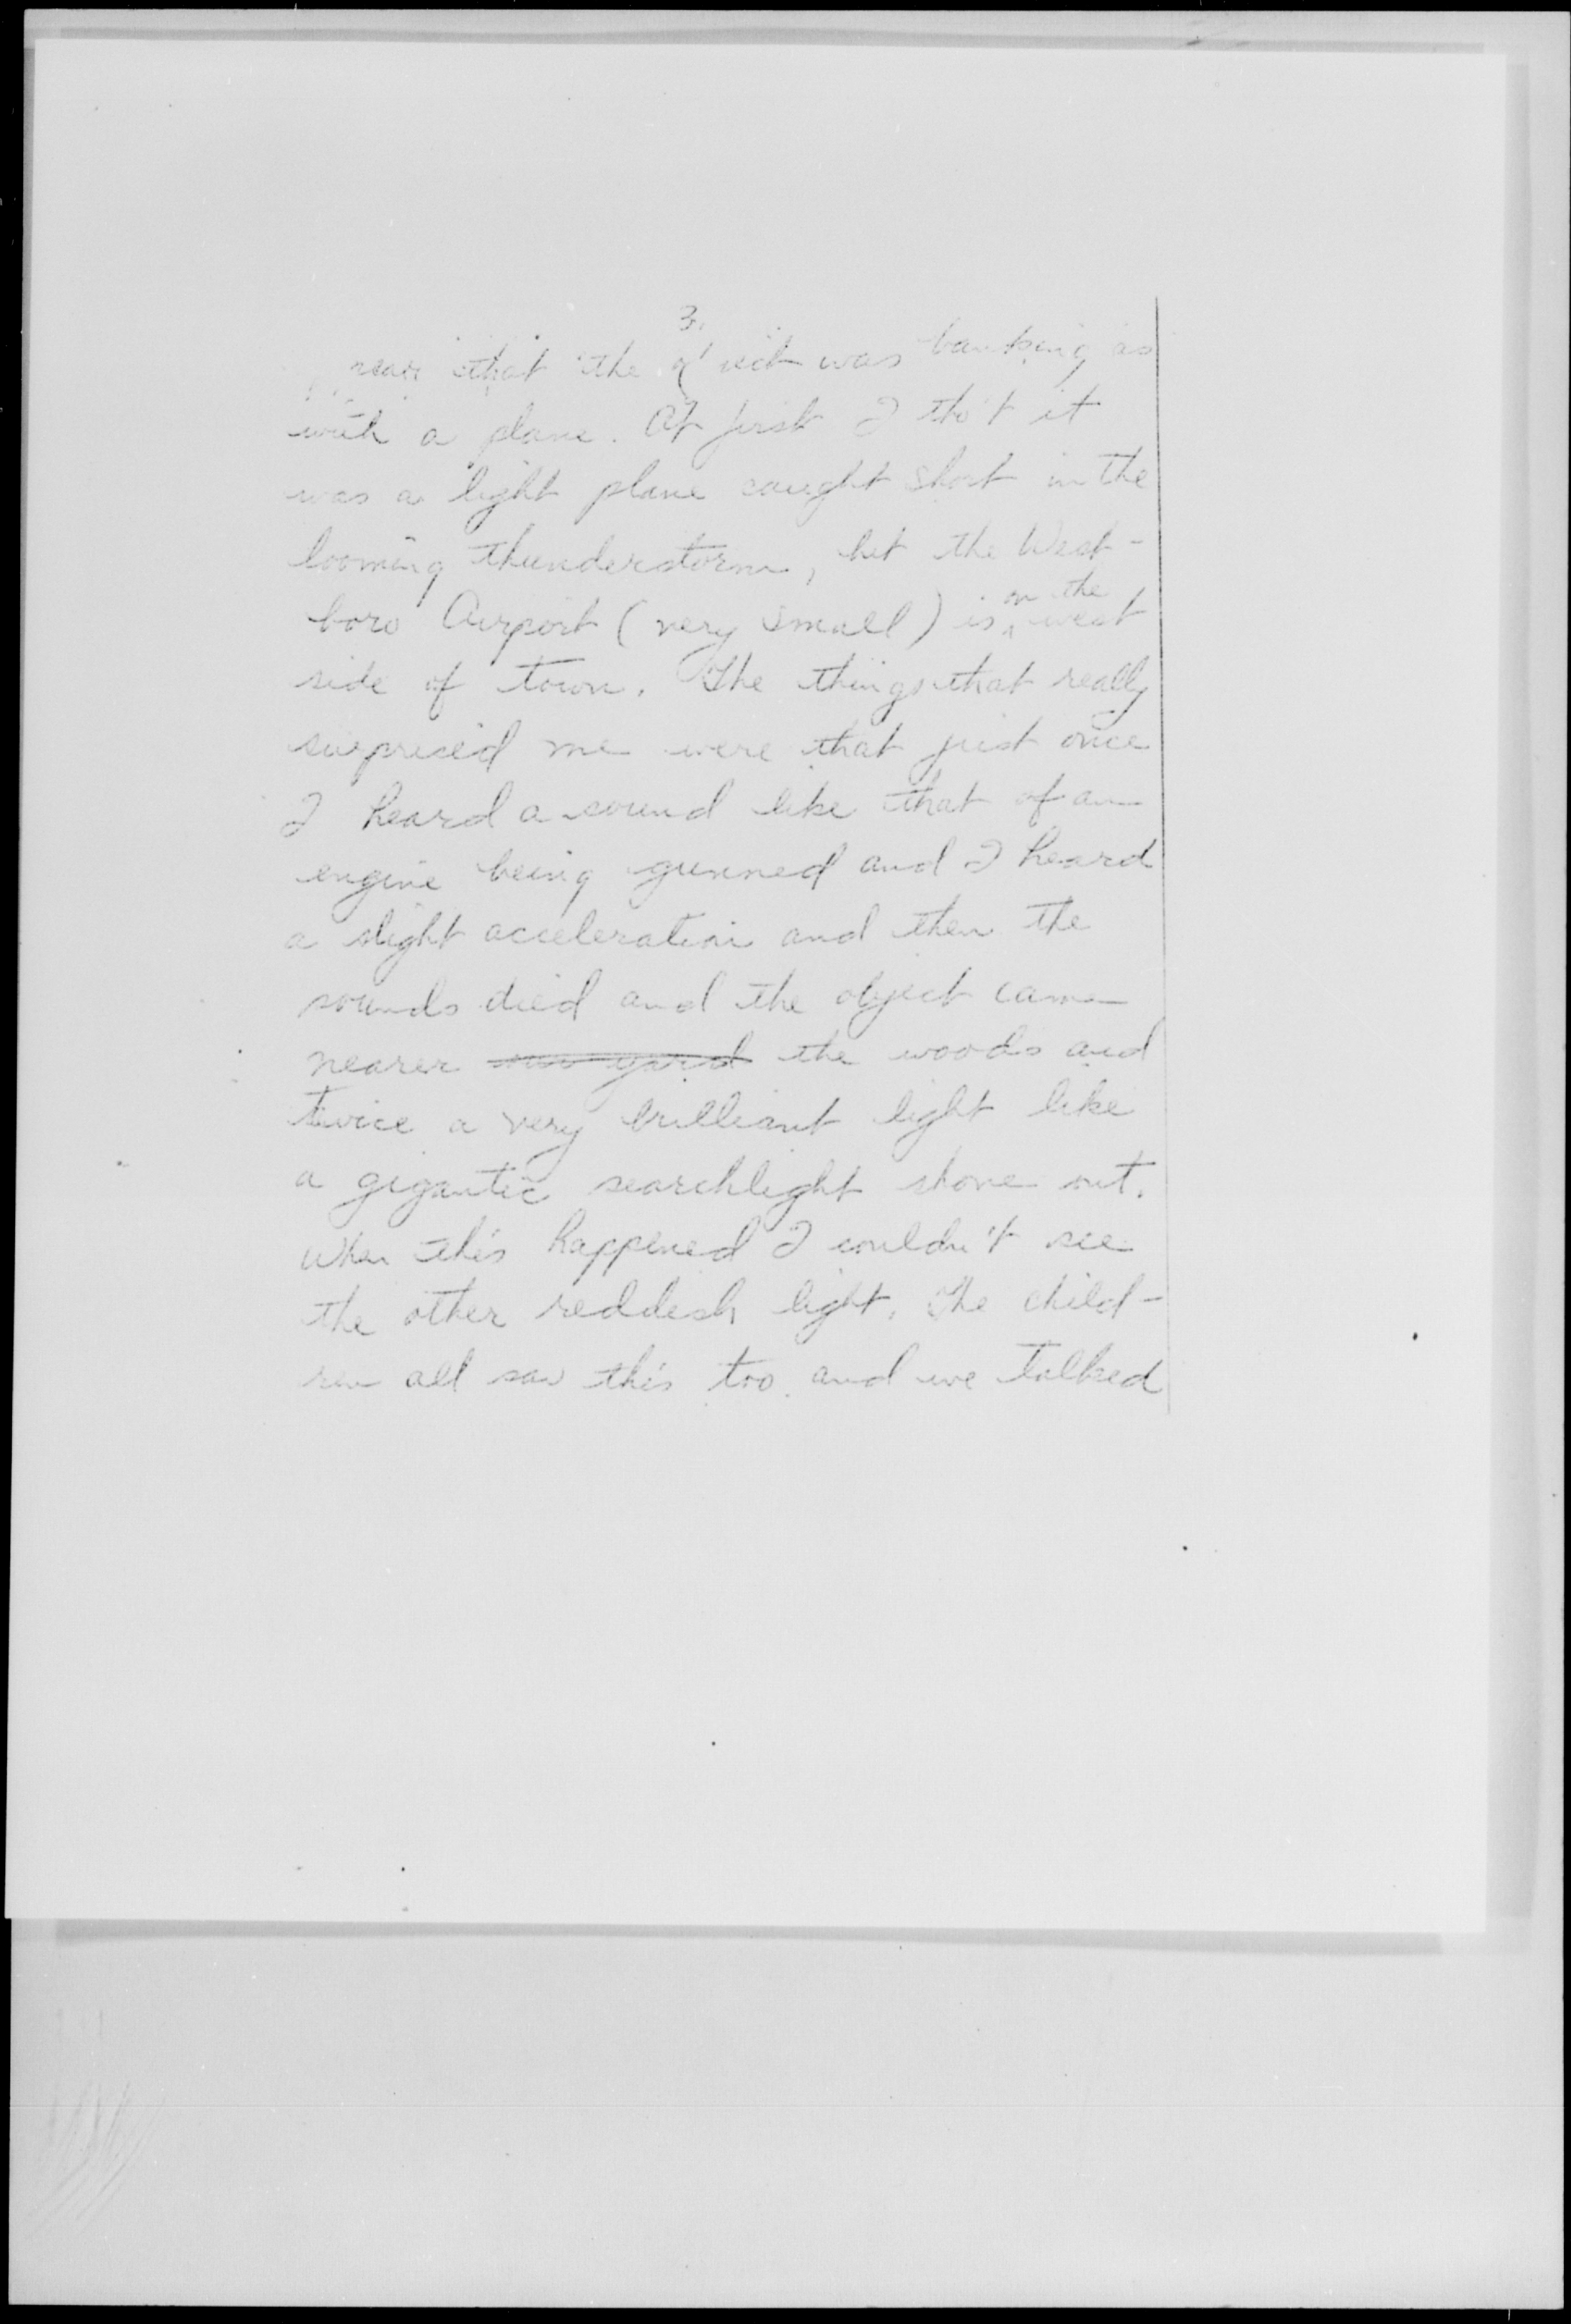 3.
near that the object was banking as
with a plane. At first I tho't it
was a light plane caught short in the
looming thunderstorm, but the West-
boro Airport (very small) is on the west
side of town. The things that really
surprised me were that just once
I heard a sound like that of an
engine being gunned and I heard
a slight acceleration and then the
sounds died and the object came
nearer our yard the woods and
twice a very brilliant light like
a gigantic searchlight shone out.
When this happened I couldn't see
the other reddish light. The child-
ren all saw this too and we talked